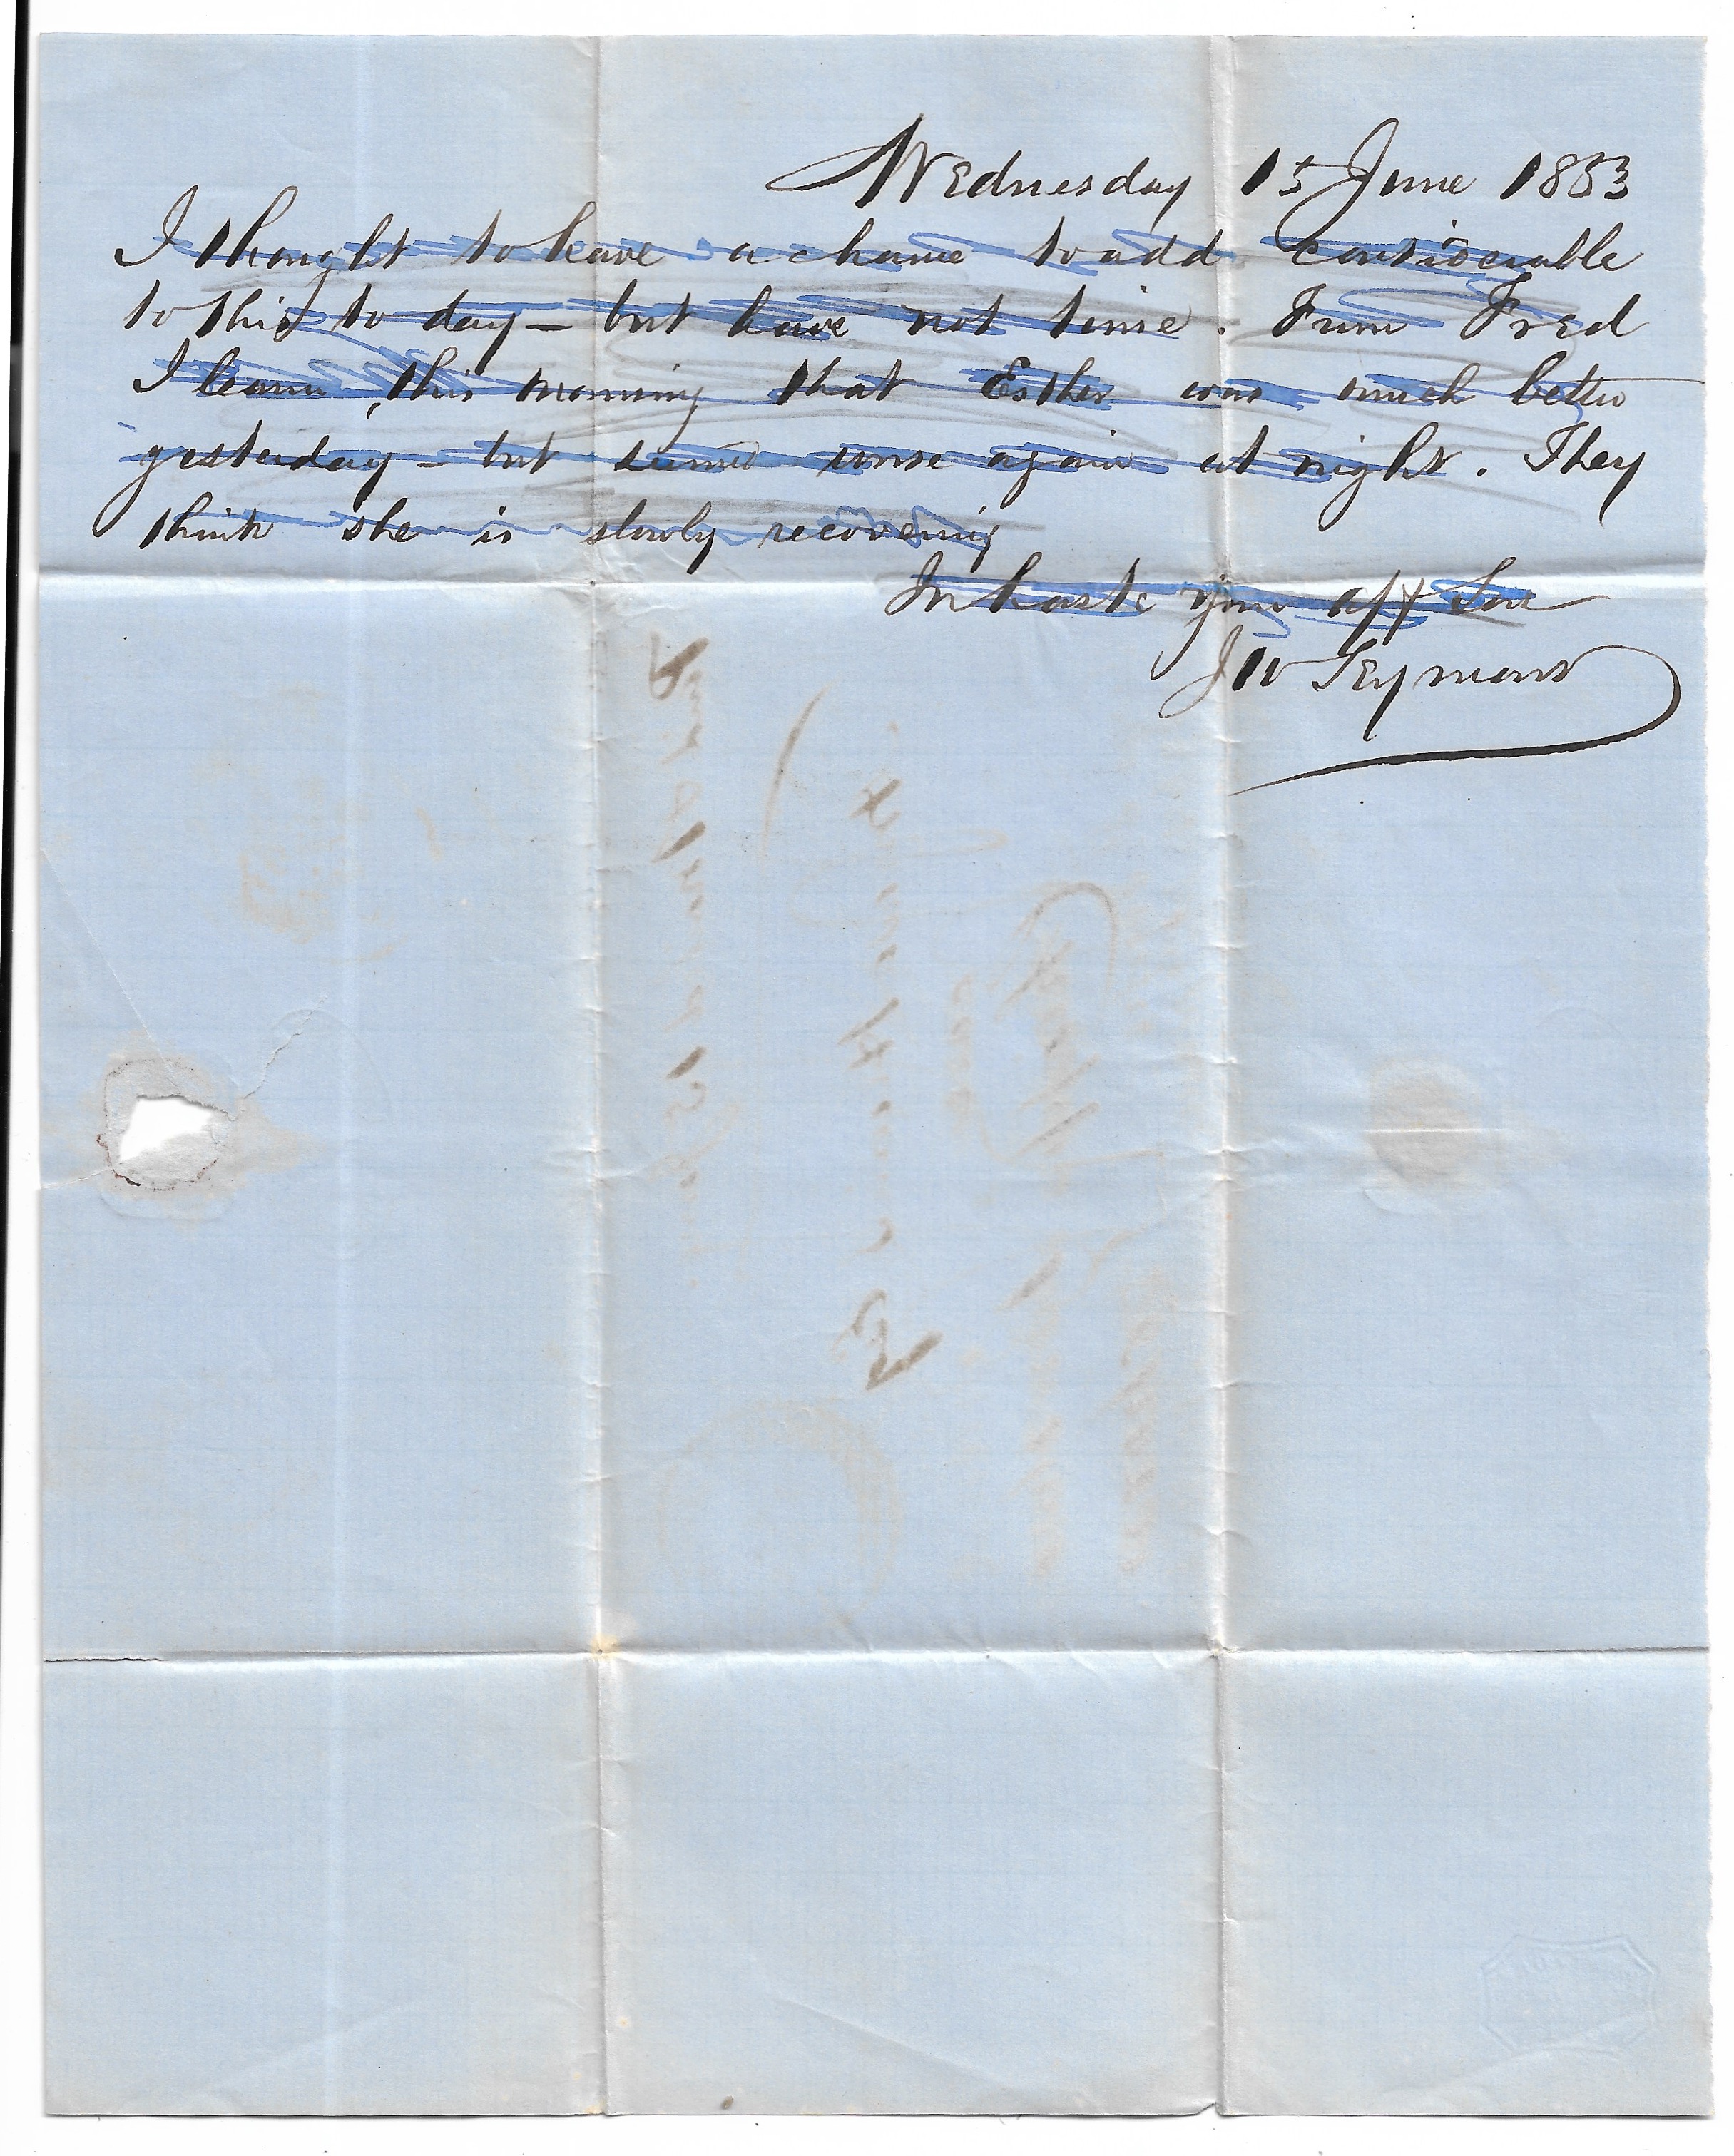 Wednesday 15 June 1853
I thought to leave a chance to add considerable
to this to day – but have not time. From Fred
I learn, this morning that Esther was much better
yesterday – but seemed worse again at night. They
think she is slowly recovering
In haste your aff Son
J W Seymour